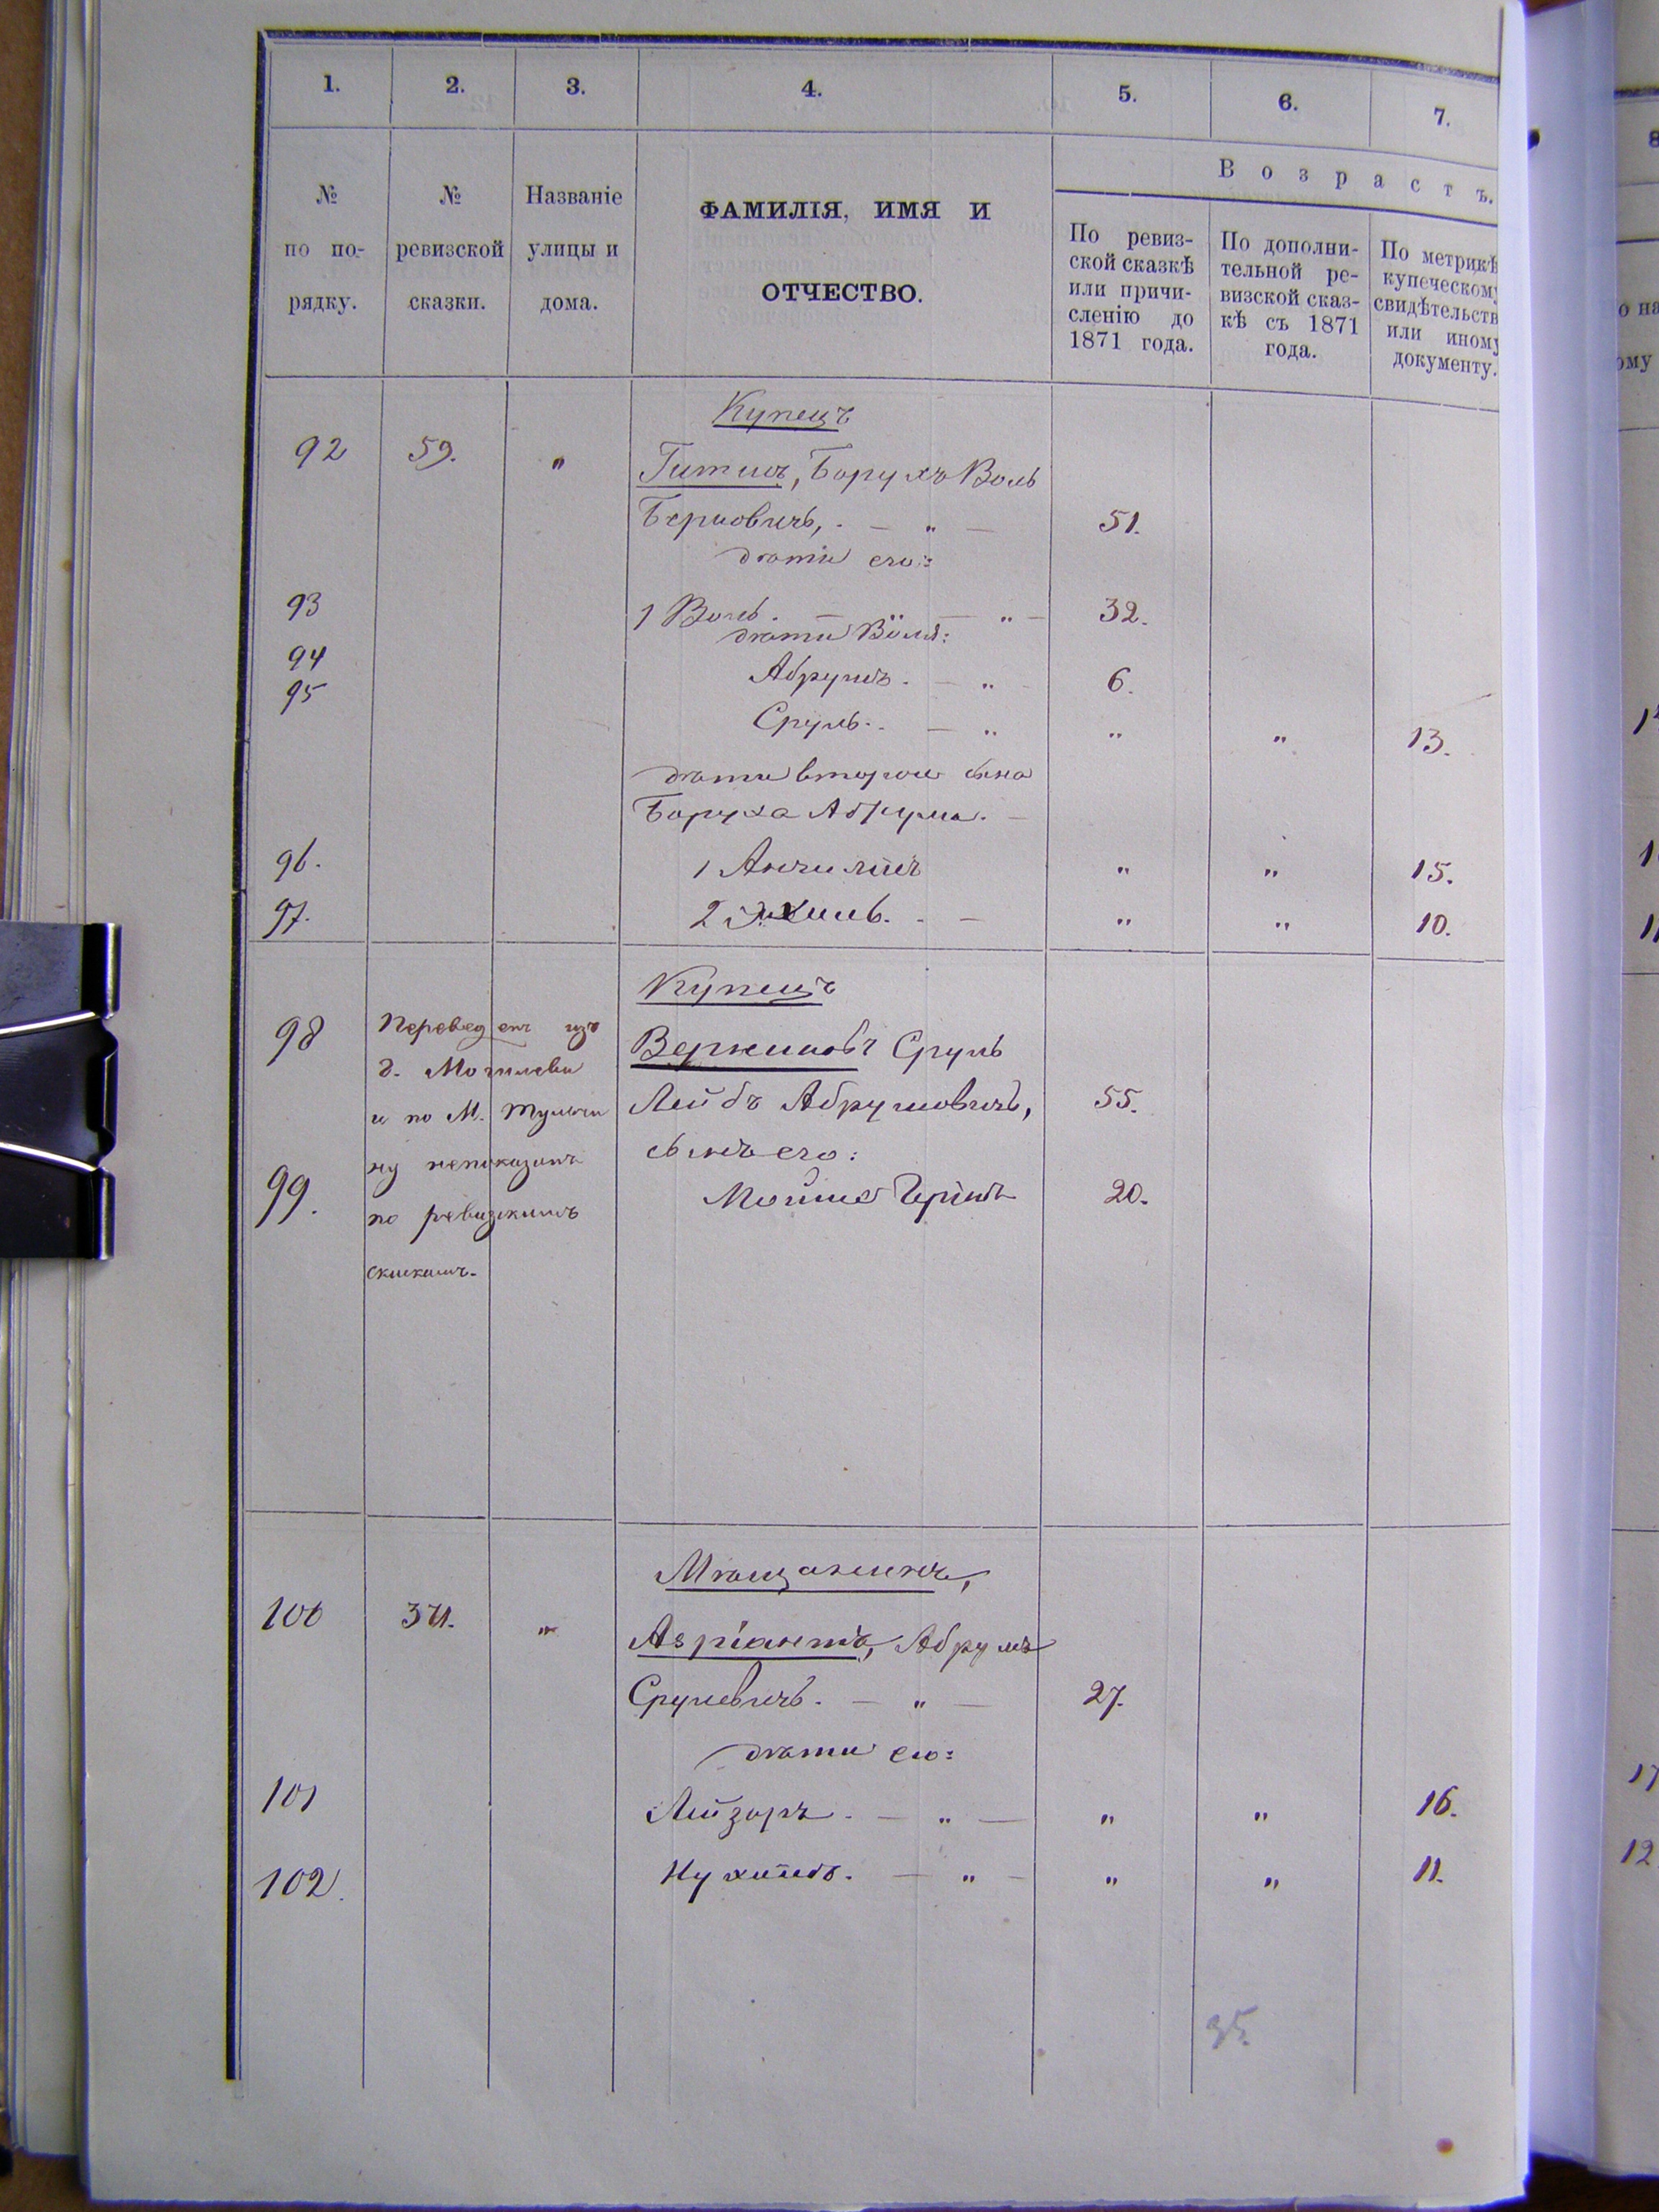 1. 2. 3. 4. 5. 6. 7.
В о з р а с т ъ.
№ по по- рядку.
№ ревизской сказки.
Названіе улицы и дома.
ФАМИЛІЯ, ИМЯ И
ОТЧЕСТВО.
По ревиз-
ской сказкѣ
или причи-
сленію до
1871 года.
По дополни-
тельной ре-
визской сказ-
кѣ съ 1871
года.
По метрикѣ
купеческому
свидѣтельств
или иному
документу.
Купецъ
92 59. " Гитисъ, Борухъ Воль
Берковичъ, . — " — 51.
дѣти его:
93 1 Воль. — " — " — 32.
дѣти Воля:
94 Абрумъ. — " - 6.
95 Сруль. . — " " " 13.
дѣти втораго сына
Боруха Абрума. —
96. 1 Анчилъ " " 15.
97. 2 Эхиль. . — " " 10.
Купецъ
98 Переведенъ изъ
г. Могилева
и по М. Тульчи
ну непоказанъ
по ревизскимъ
сказкамъ.
Сруль
Лейбъ Абрумовичъ, 55.
сынъ его:
99. Мойше Гершъ 20.
Мѣщанинъ,
100 371. " Абрумъ
Срулевичъ. — " — 27.
дѣти его:
101 Лейзоръ. — " — " " 16.
102. Нухимъ. — " — " " 11.
35.